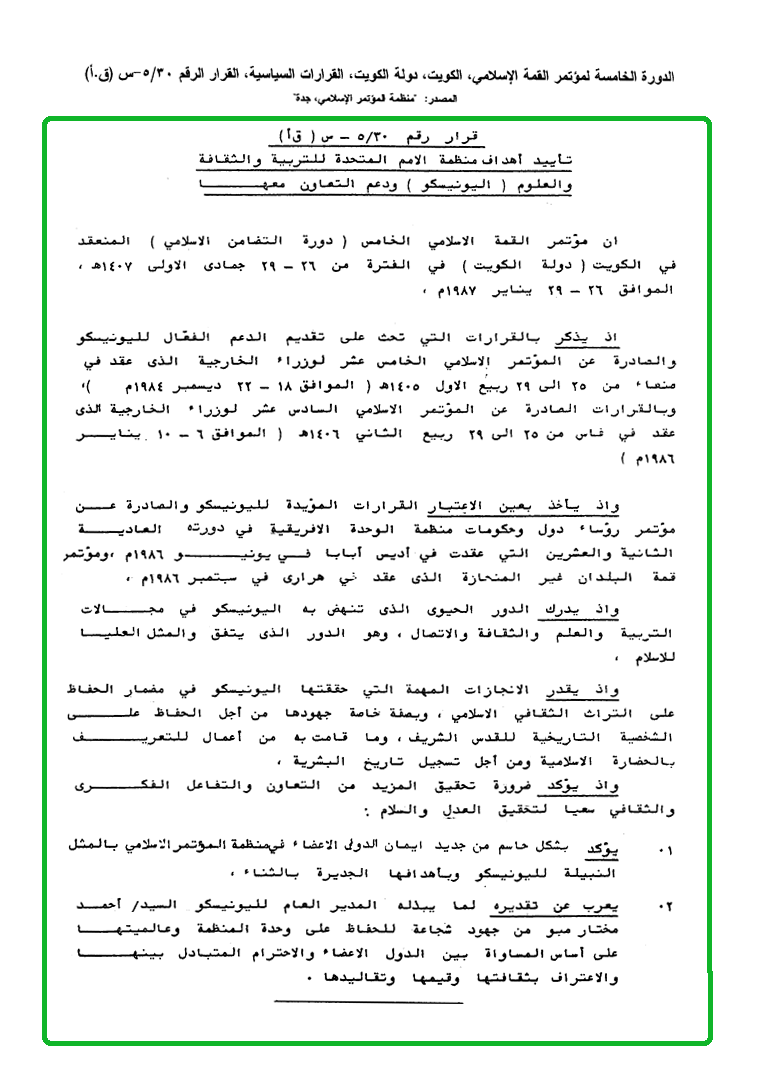 الدورة الخامسة لمؤتمر القمة الإسلامي، الكويت، دولة الكويت، القرارات السياسية، القرار الرقم ٥/٣٠-س (ق.أ)
المصدر: "منظمة المؤتمر الإسلامي، جدة"
قرار رقم ٥/٣٠ – س ( ق أ )
تأييد أهداف منظمة الامم المتحدة للتربية والثقافة
والعلوم ( اليونيسكو ) ودعم التعاون معها
ان مؤتمر القمة الاسلامي الخامس ( دورة التضامن الاسلامي ) المنعقد
في الكويت ( دولة الكويت ) في الفترة من ٢٦ – ٢٩ جمادى الاولى ١٤٠٧هـ ،
الموافق ٢٦ – ٢٩ يناير ١٩٨٧م ،
اذ يذكر بالقرارات التي تحث على تقديم الدعم الفعّال لليونيسكو
والصادرة عن المؤتمر الاسلامي الخامس عشر لوزراء الخارجية الذى عقد في
صنعاء من ٢٥ الى ٢٩ ربيع الاول ١٤٠٥هـ ( الموافق ١٨ – ٢٢ ديسمبر ١٩٨٤م )،
وبالقرارات الصادرة عن المؤتمر الاسلامي السادس عشر لوزراء الخارجية الذى
عقد في فاس من ٢٥ الى ٢٩ ربيع الثاني ١٤٠٦هـ ( الموافق ٦ – ١٠ يناير
١٩٨٦م )
واذ يأخذ بعين الاعتبار القرارات المؤيدة لليونيسكو والصادرة عن
مؤتمر رؤساء دول وحكومات منظمة الوحدة الافريقية في دورته العادية
الثانية والعشرين التي عقدت في أديس أبابا في يونيو ١٩٨٦م ،ومؤتمر
قمة البلدان غير المنحازة الذى عقد في هرارى في سبتمبر ١٩٨٦م ،
واذ يدرك الدور الحيوى الذى تنهض به اليونيسكو في مجالات
التربية والعلم والثقافة والاتصال ، وهو الدور الذى يتفق والمثل العليا
للاسلام ،
واذ يقدر الانجازات المهمة التي حققتها اليونيسكو في مضمار الحفاظ
على التراث الثقافي الاسلامي ، وبصفة خاصة جهودها من أجل الحفاظ على
الشخصية التاريخية للقدس الشريف ، وما قامت به من أعمال للتعريف
بالحضارة الاسلامية ومن أجل تسجيل تاريخ البشرية ،
واذ يؤكد ضرورة تحقيق المزيد من التعاون والتفاعل الفكرى
والثقافي سعيا لتحقيق العدل والسلام :
٠١ يؤكد بشكل حاسم من جديد ايمان الدول الاعضاء في منظمة المؤتمر الاسلامي بالمثل
النبيلة لليونيسكو وبأهدافها الجديرة بالثناء ،
٠٢ يعرب عن تقديره لما يبذله المدير العام لليونيسكو السيد/ أحمد
مختار مبو من جهود شجاعة للحفاظ على وحدة المنظمة وعالميتها
على أساس المساواة بين الدول الاعضاء والاحترام المتبادل بينها
والاعتراف بثقافتها وقيمها وتقاليدها ٠